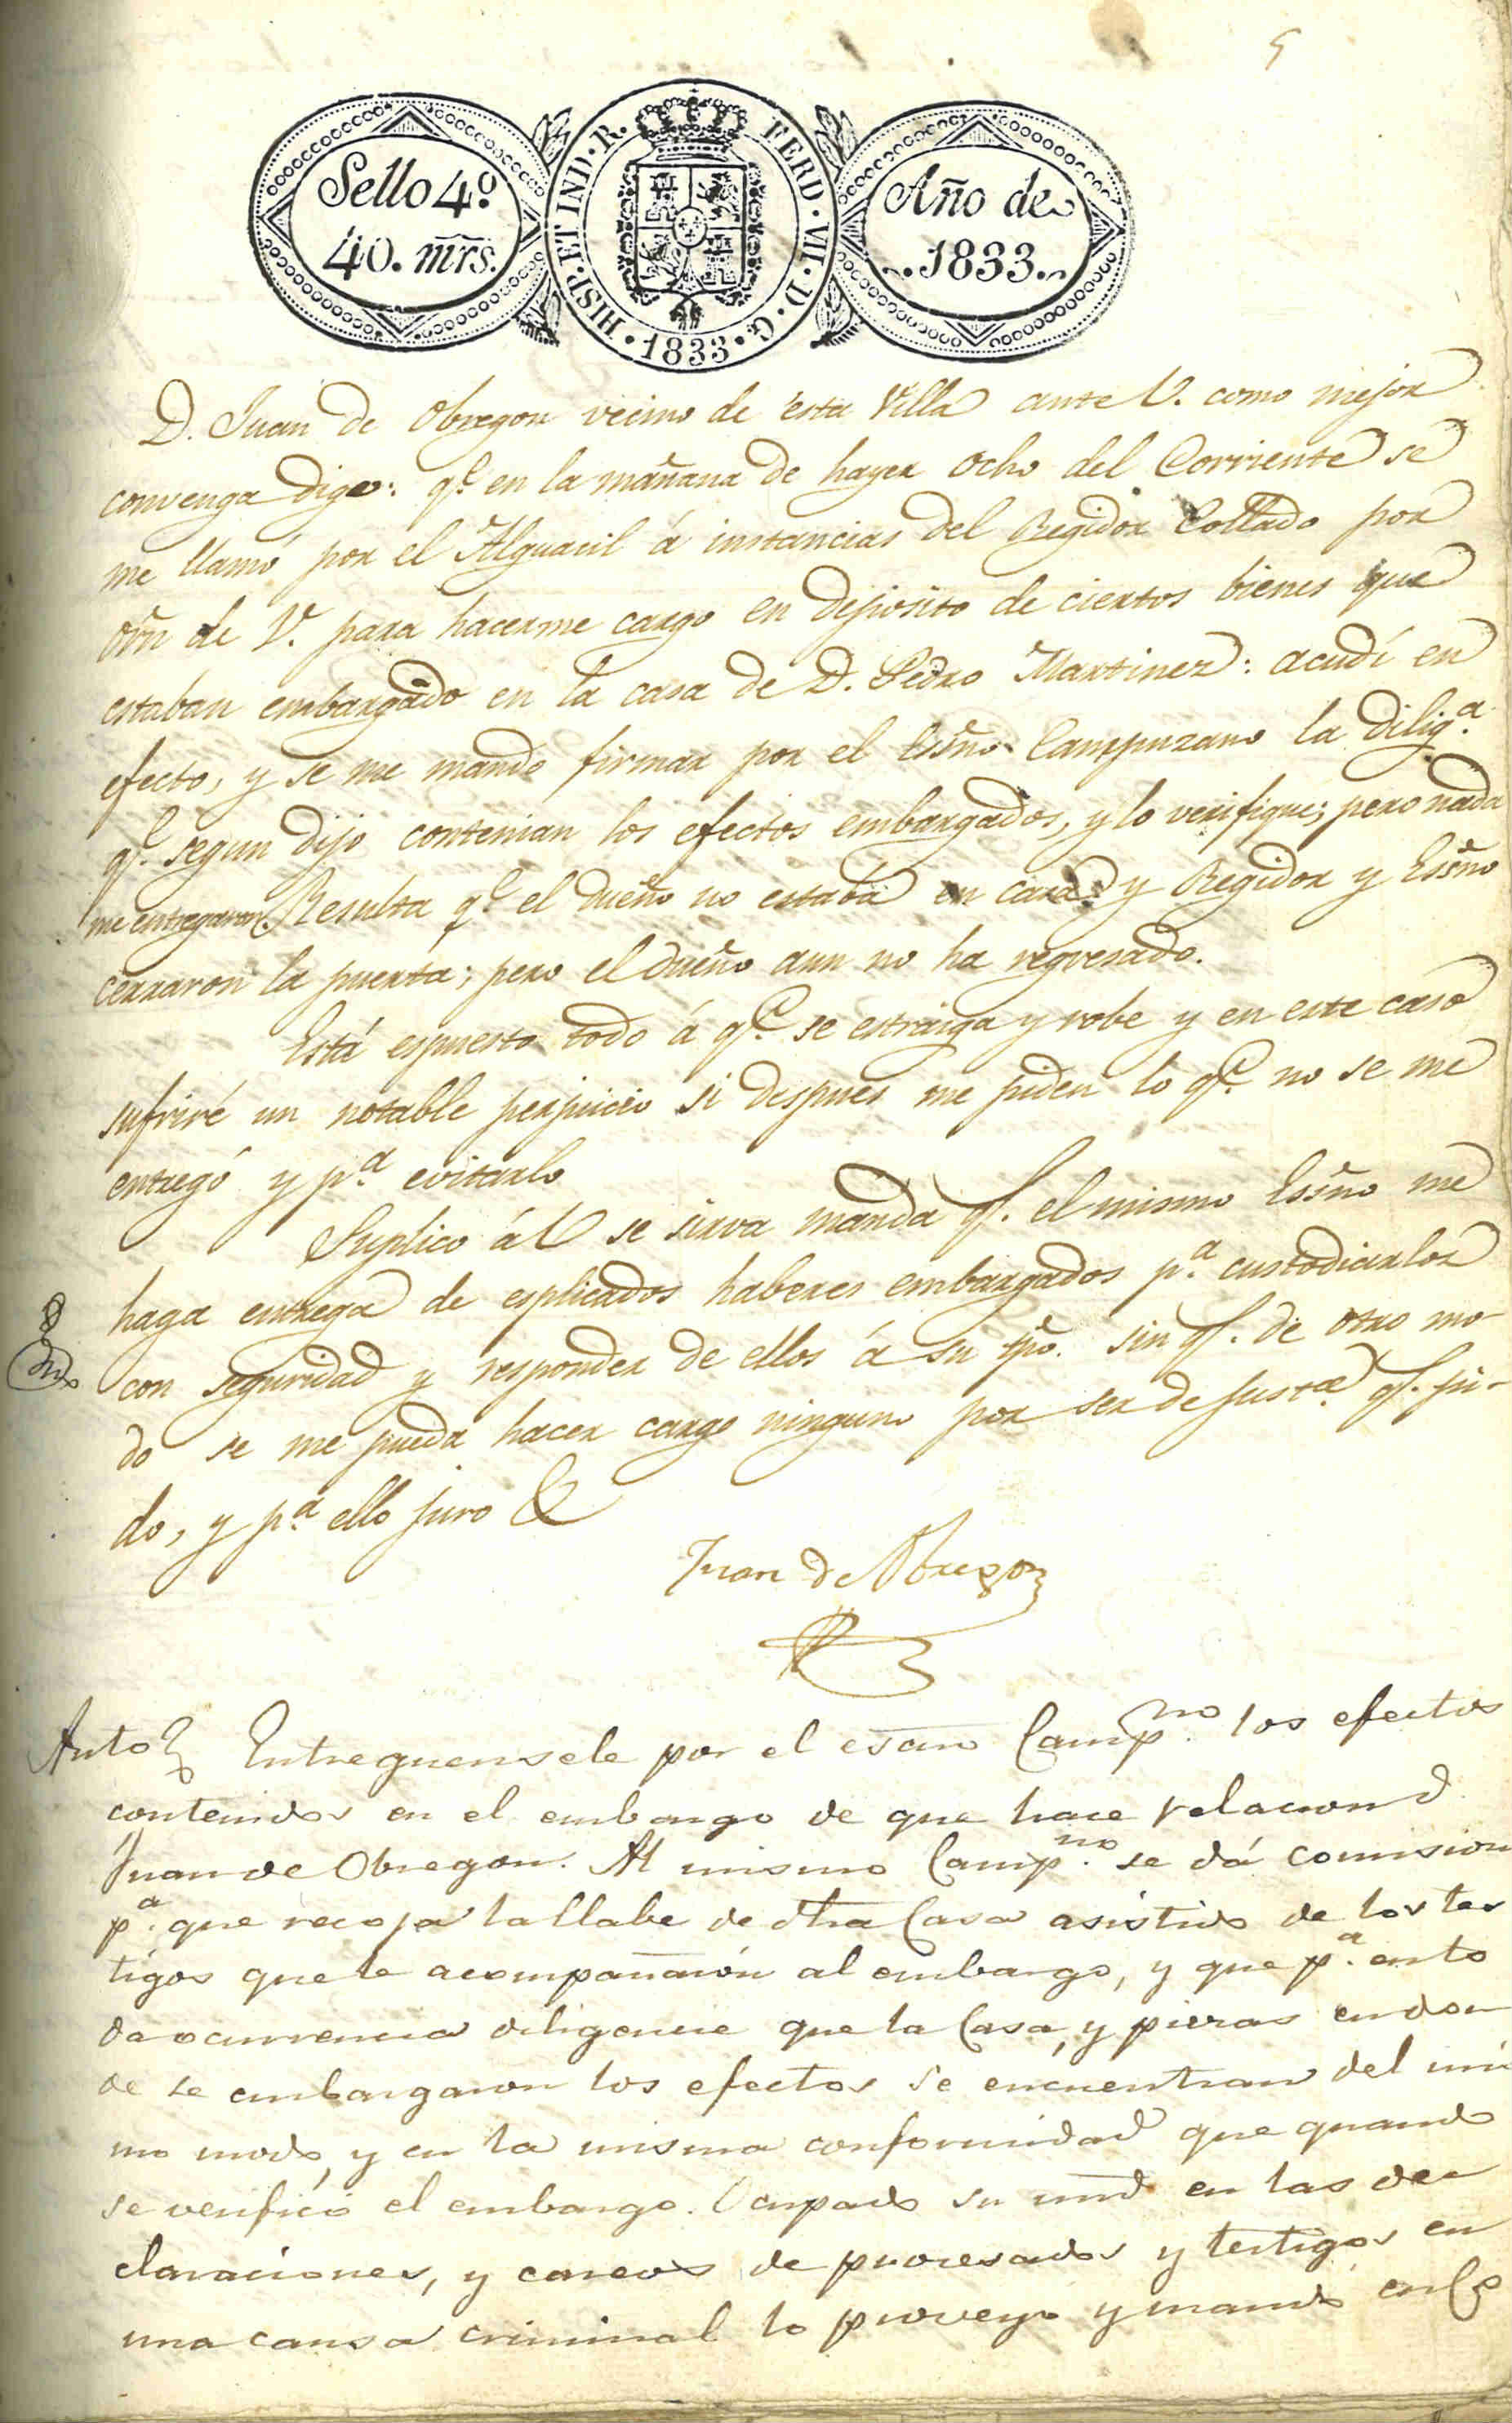 5
Sello 4º
40. mrs.
HISP. ET IND. R. FERD. VII. D. G. 1833
Año de
1833.
D. Juan de Obregon vecino de esta Villa ante V. como mejor
convenga digo: qe. en la mañana de hayer ocho del Corriente se
me llamó por el Alguacil á instancias del Regidor Collado por
orn de V. para hacerme cargo en deposito de ciertos bienes que
estaban embargado en la casa de D. Pedro Martinez: acudí en
efecto, y se me mandó firmar por el Essno Campuzano la Dilig.a
qe. segun dijo contenian los efectos embargados, y lo verifique; pero nada
me entregaron. Resulta qe. el dueño no estaba en casa y Regidor y Essno
cerraron la puerta; pero el dueño aun no ha regresado.
Está espuesto todo á qe. se estraiga y robe y en este caso
sufriré un notable perjuicio si despues me piden lo qe. no se me
entregó y p.a evitarlo
Suplico á V se sirva manda q. el mismo Essno me
haga entrega de esplicados haberes embargados p.a custodiarlos
con seguridad y responder de ellos á su tpo. sin q. de otro mo-
do se me pueda hacer cargo ninguno por ser de Just.a q. pi-
do, y p.a ello juro &
Juan de Obregon
Auto Entreguensele por el escno Camp.no los efectos
contenidos en el embargo de que hace relacion D.
Juan de Obregon. Al mismo Camp.no se dá comision
p.a que recoja la llabe de dha Casa asistido de los tes
tigos que le acompañaron al embargo, y que p.a en to
da ocurrencia diligencie que la Casa, y piezas en don
de se embargaron los efectos se encuentran del mis
mo modo, y en la misma conformidad que quando
se verificó el embargo. Ocupado su mrd en las de
claraciones, y careos de procesados y testigos en
una causa criminal lo proveyo y mandó